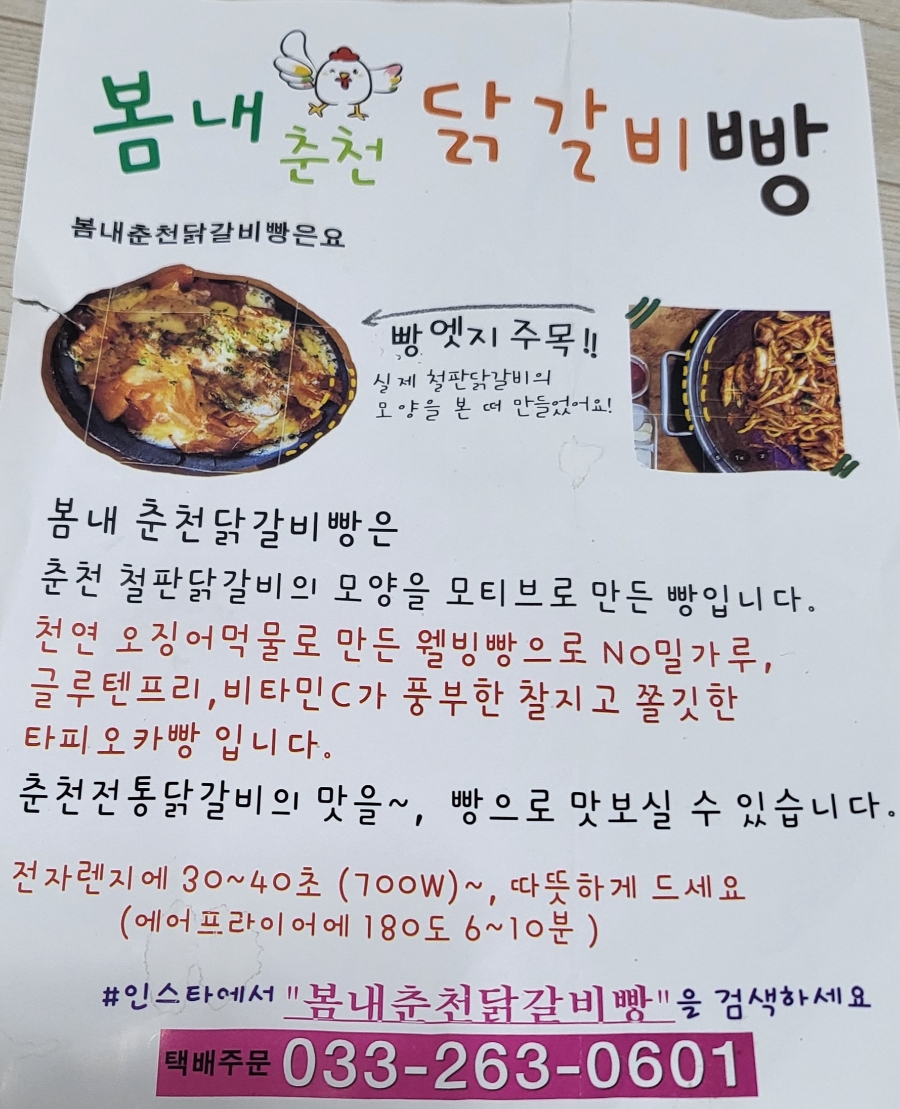 봄내 춘천 닭갈비빵
봄내춘천닭갈비빵은요
빵 엣지 주목!!
실제 철판닭갈비의
모양을 본 떠 만들었어요!
봄내 춘천닭갈비빵은
춘천 철판닭갈비의 모양을 모티브로 만든 빵입니다.
천연 오징어먹물로 만든 웰빙빵으로 NO밀가루,
글루텐프리,비타민C가 풍부한 찰지고 쫄깃한
타피오카빵 입니다.
춘천전통닭갈비의 맛을~, 빵으로 맛보실 수 있습니다.
전자렌지에 30~40초 (700W)~, 따뜻하게 드세요
(에어프라이어에 180도 6~10분 )
#인스타에서 "봄내춘천닭갈비빵"을 검색하세요
택배주문 033-263-0601